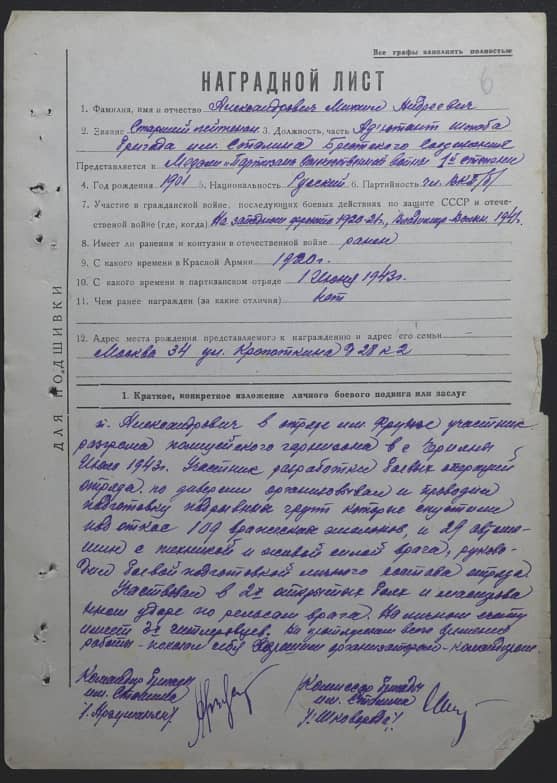 Все графы заполнять полностью
6
НАГРАДНОЙ ЛИСТ
1. Фамилия, имя и отчество Александрович Михаил Андреевич
2. Звание Старший лейтенант 3. Должность, часть Адъютант штаба
бригада им. Сталина Брестского соединения
Представляется к Медали „Партизану Отечественной войны" 1й степени
4. Год рождения 1901 5. Национальность Русский 6. Партийность чл. ВКП/б/
7. Участие в гражданской войне, последующих боевых действиях по защите СССР и отече-
ственой войне (где, когда) На западном фронте 1920-21г., 1941г.
8. Имеет ли ранения и контузии в отечественной войне ранен
9. С какого времени в Красной Армии 1920г.
10. С какого времени в партизанском отряде 1 Июня 1943г.
11. Чем ранее награжден (за какие отличия) нет
12. Адрес места рождения представляемого к награждению и адрес его семьи
Москва 34 ул. Кропоткина 28 к 2
ДЛЯ ПОДШИВКИ
1. Краткое, конкретное изложение личного боевого подвига или заслуг
т. Александрович в отряде им Фрунзе участник
разгрома полицейского гарнизона в с
Июле 1943г. Участник разработки боевых операций
отряда. по диверсии организовывал и проводил
подготовку подрывных групп которые спустили
под откос 109 вражеских эшелонов, и 29 автома-
шин с техникой и живой силой врага, руково-
дил боевой подготовкой личного состава отряда.
Участвовал в 2х открытых боях и
ном ударе по рельсам врага. На личном счету
имеет 3х гитлеровцев. На протяжении всего времени
работы - показал себя хорошим организатором - командиром
Командир бригады
им. Сталина
/Арзуманян/
Комиссар бригады
им. Сталина